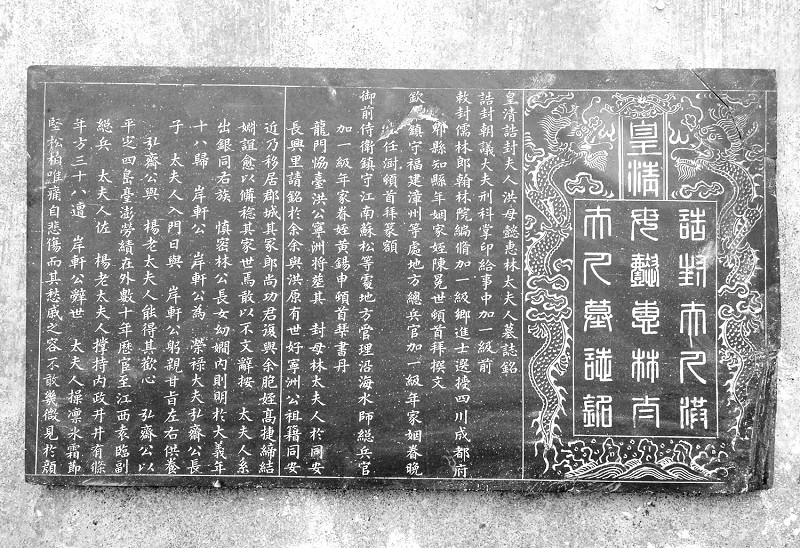 皇清
誥封夫人洪
母懿惠林太
夫人墓誌銘
皇清誥封夫人洪母懿惠林太夫人墓誌銘
誥封朝議大夫刑科掌印給事中加一級前
敕封儒林郎翰林院編脩加一級鄉進士選授四川成都府
郫縣知縣年姻家姪陳冕世頓首拜撰文
欽 鎮守福建漳州等處地方總兵官加一級年家姻眷晚
生任澍頓首拜篆額
御前侍衛鎮守江南蘇松等處地方管理沿海水師總兵官
加一級年家眷姪黃錫申頓首拜書丹
龍門協臺洪公寧洲將塟其 封母林太夫人於同安
長興里請銘於余余與洪原有世好寧洲公祖籍同安
近乃移居郡城其冢郎尚功君復與余胞姪高捷締結
姻誼愈以備稔其家世焉敢以不文辭按 太夫人系
出銀同右族 慎密林公長女幼嫻內則明於大義年
十八歸 岸軒公 岸軒公為 榮祿大夫弘齋公長
子 太夫人入門日與 岸軒公躬親甘旨左右供養
弘齋公與 楊老太夫人能得其歡心 弘齋公以
平定四島臺澎勞績在外數十年歷官至江西袁臨副
總兵 太夫人佐 楊老太夫人撑持內政井井有條
年方三十八遭 岸軒公辭世 太夫人操凛氷霜節
堅松柏唯痛自悲傷而其愁戚之容不敢幾微見於顏